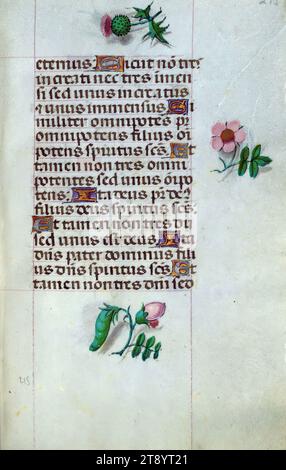 eternus Sicut non tres
increati nec tres imen
si sed unus increatus
et unus immensus Si
militer omnipotēs pr
omnipotens filius oī
potens spiritus scūs Et
tamen non tres omni
potentes sed unus oīpo
tens Ita deus pr de
filius deus spiritus scs
Et tamen non tres dij
sed unus est deus Ita
dūs pater dominus fili
us dūs spiritus scūs Et
tamen non tres dni sed
215
alamy
Image ID: 2T8YT21
www.alamy.com